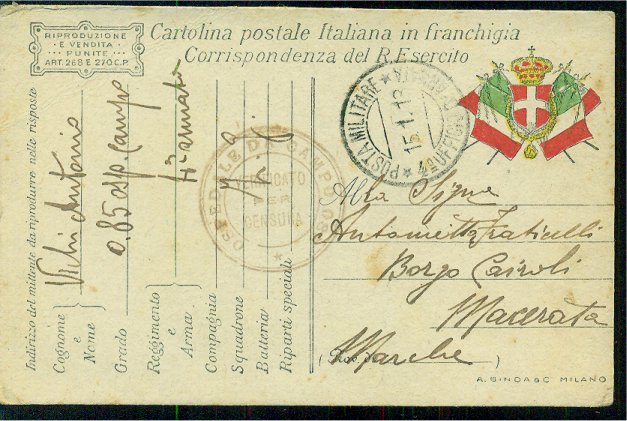 RIPRODUZIONE
E VENDITA
PUNITE
ART. 268 E 270 C.P.
Cartolina postale Italiana in franchigia
Corrispondenza del R. Esercito
POSTA MILITARE
15.1.18
4ª UFFICIO
OSPEDALE DA CAMPO
VERIFICATO
PER
CENSURA
Indirizzo del mittente da riprodurre nelle risposte
Cognome
e
Nome
Antonio
Grado
0.85 Osp. Campo
Reggimento
e
Arma
Armata
Compagnia
Squadrone
Batteria
Riparti speciali
Alla Sigra
Antonietta Fraticelli
Borgo Cairoli
Macerata
Marche
A. BINDA & C MILANO